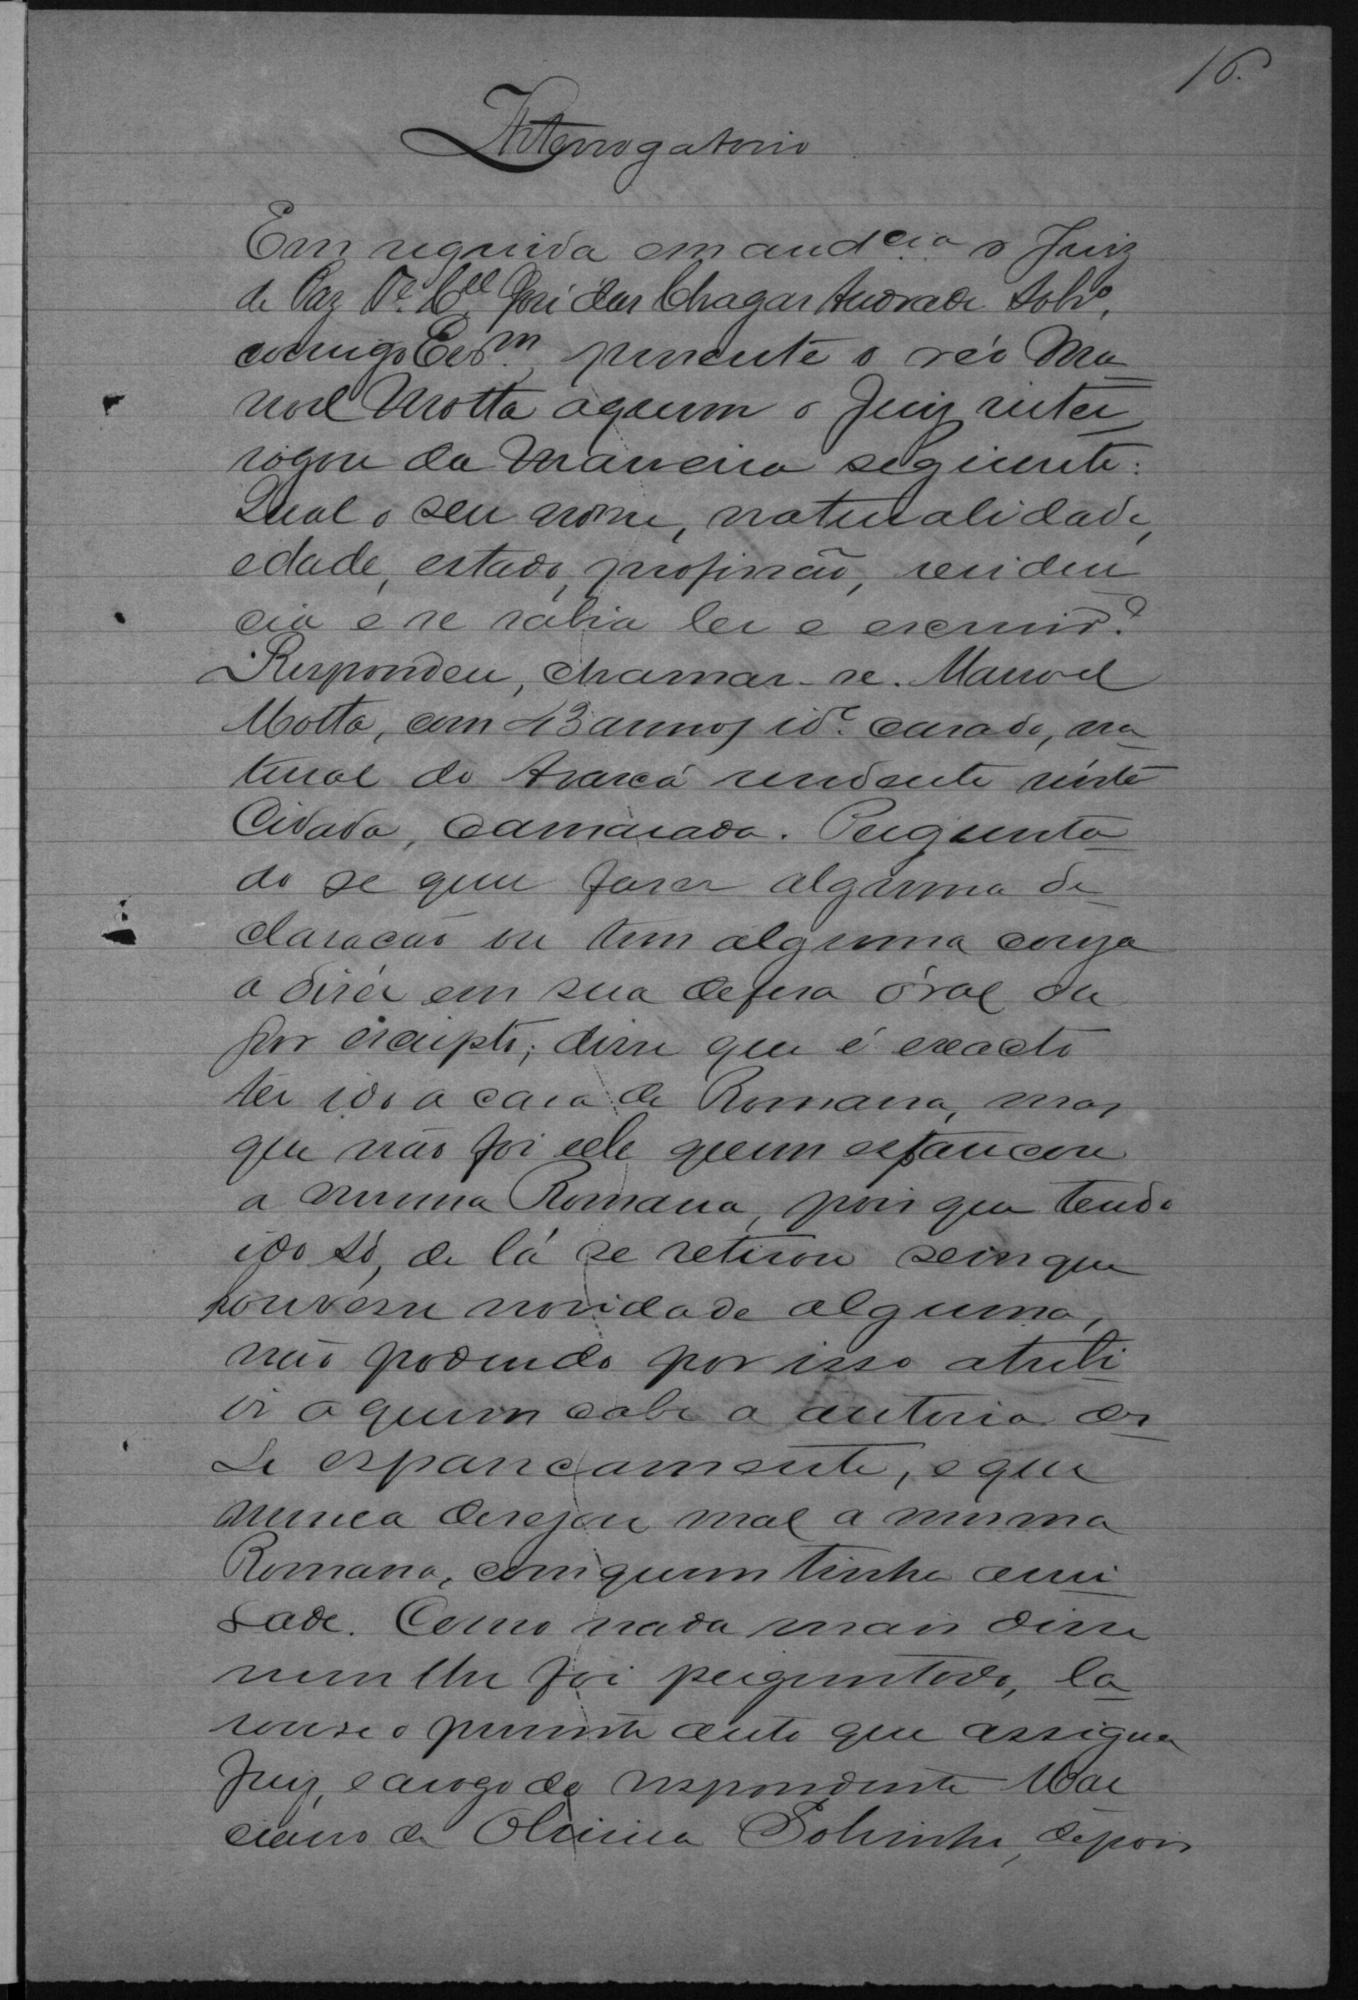 16.
Interrogatorio
Em seguida em audcia o Juiz
de Paz Te. Cel. José das Chagas Andrade Sobro,
comigo Escm, presente o réo Ma_
noel Motta aquem o Juiz inter_
rogou da maneira seguinte:
Qual o seu nome, naturalidade,
edade, estado, profissão, residen_
cia e se sabia ler e escrever?
Respondeu, chamar-se. Manoel
Motta, com 43 annos ide casado, na_
tural do Araxá residente nesta
Cidade, camarada. Pergunta_
do se quer faser alguma de_
claracão ou tem alguma couza
a diser em sua defesa óral ou
por escripto; disse que é exacto
ter ido a casa de Romana, mas
que não foi elle quem espancou
a mesma Romana, pois que tendo
ido só, de lá se retirou sem que
houvesse novidade alguma,
não podendo por isso atribu_
ir a quem cabe a autoria des_
se espancamento, e que
nunca desejou mal a mesma
Romana, com quem tinha ami_
sade. Como nada mais disse
nem lhe foi perguntado, la_
vouse o presente auto que assigna
Juiz, e arogo do respondente Mar
ciano de Oliveira Sobrinho, depois